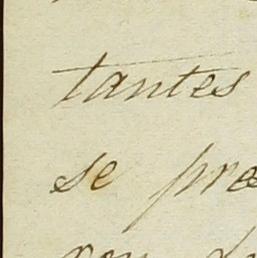 tantes
se pre